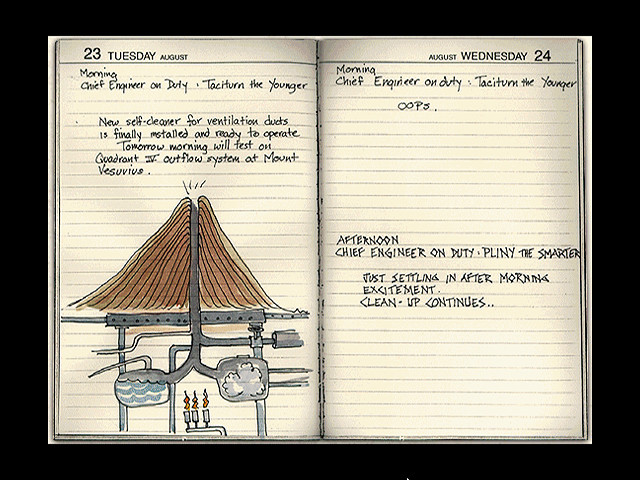 23 TUESDAY AUGUST
Morning
Chief Engineer on Duty · Taciturn the Younger
New self-cleaner for ventilation ducts
is finally installed and ready to operate
Tomorrow morning will test on
Quadrant IV outflow system at Mount
Vesuvius.
AUGUST WEDNESDAY 24
Morning
Chief Engineer on duty · Taciturn the Younger
OOPS.
AFTERNOON
CHIEF ENGINEER ON DUTY · PLINY THE SMARTER
JUST SETTLING IN AFTER MORNING
EXCITEMENT.
CLEAN-UP CONTINUES..